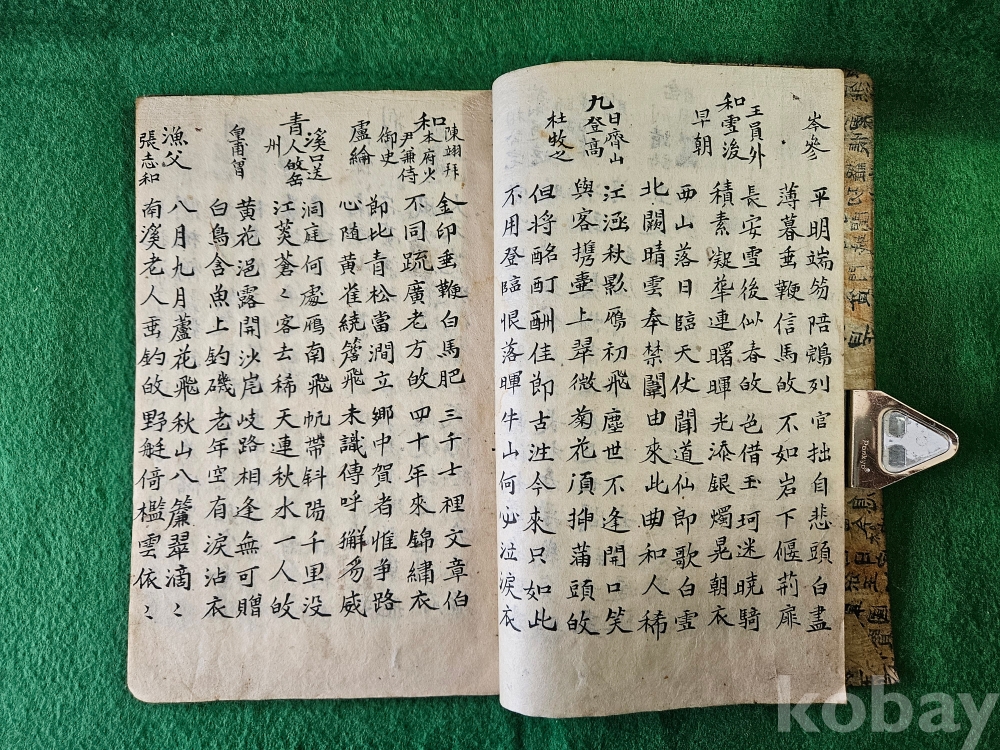 岑參
平明端笏陪鵷列 官拙自悲頭白盡
薄暮垂鞭信馬㱕 不如岩下偃荊扉
和王員外雪後早朝
長安雪後似春㱕 色借玉珂迷曉騎
積素凝華連曙暉 光添銀燭晃朝衣
西山落日臨天仗 聞道仙郎歌白雪
北闕晴雲奉禁闈 由來此曲和人稀
九日齊山登高
杜牧之
江涵秋影鴈初飛 塵世不逢開口笑
與客携壷上翠微 菊花須揷滿頭㱕
但將酩酊酬佳節 古往今來只如此
不用登臨恨落暉 牛山何必泣淚衣
陳翊拜
金印垂鞭白馬肥 三千士裡文章伯
和本府火尹兼侍御史
不同疏廣老方㱕 四十年來錦繡衣
即比青松當澗立 鄉中賀者惟爭路
盧綸
心隨黃雀繞簷飛 未識傳呼獬豸威
青溪口送人㱕岳州
洞庭何處鴈南飛 帆帶斜陽千里没
江菼蒼〻客去稀 天連秋水一人㱕
皇甫曾
黄花浥露開沙岸 岐路相逢無可贈
白鳥含魚上釣磯 老年空有淚沾衣
漁父
八月九月蘆花飛 秋山八簾翠滴〻
張志和
南溪老人垂釣㱕 野艇倚檻雲依〻
Pankyo
kobay